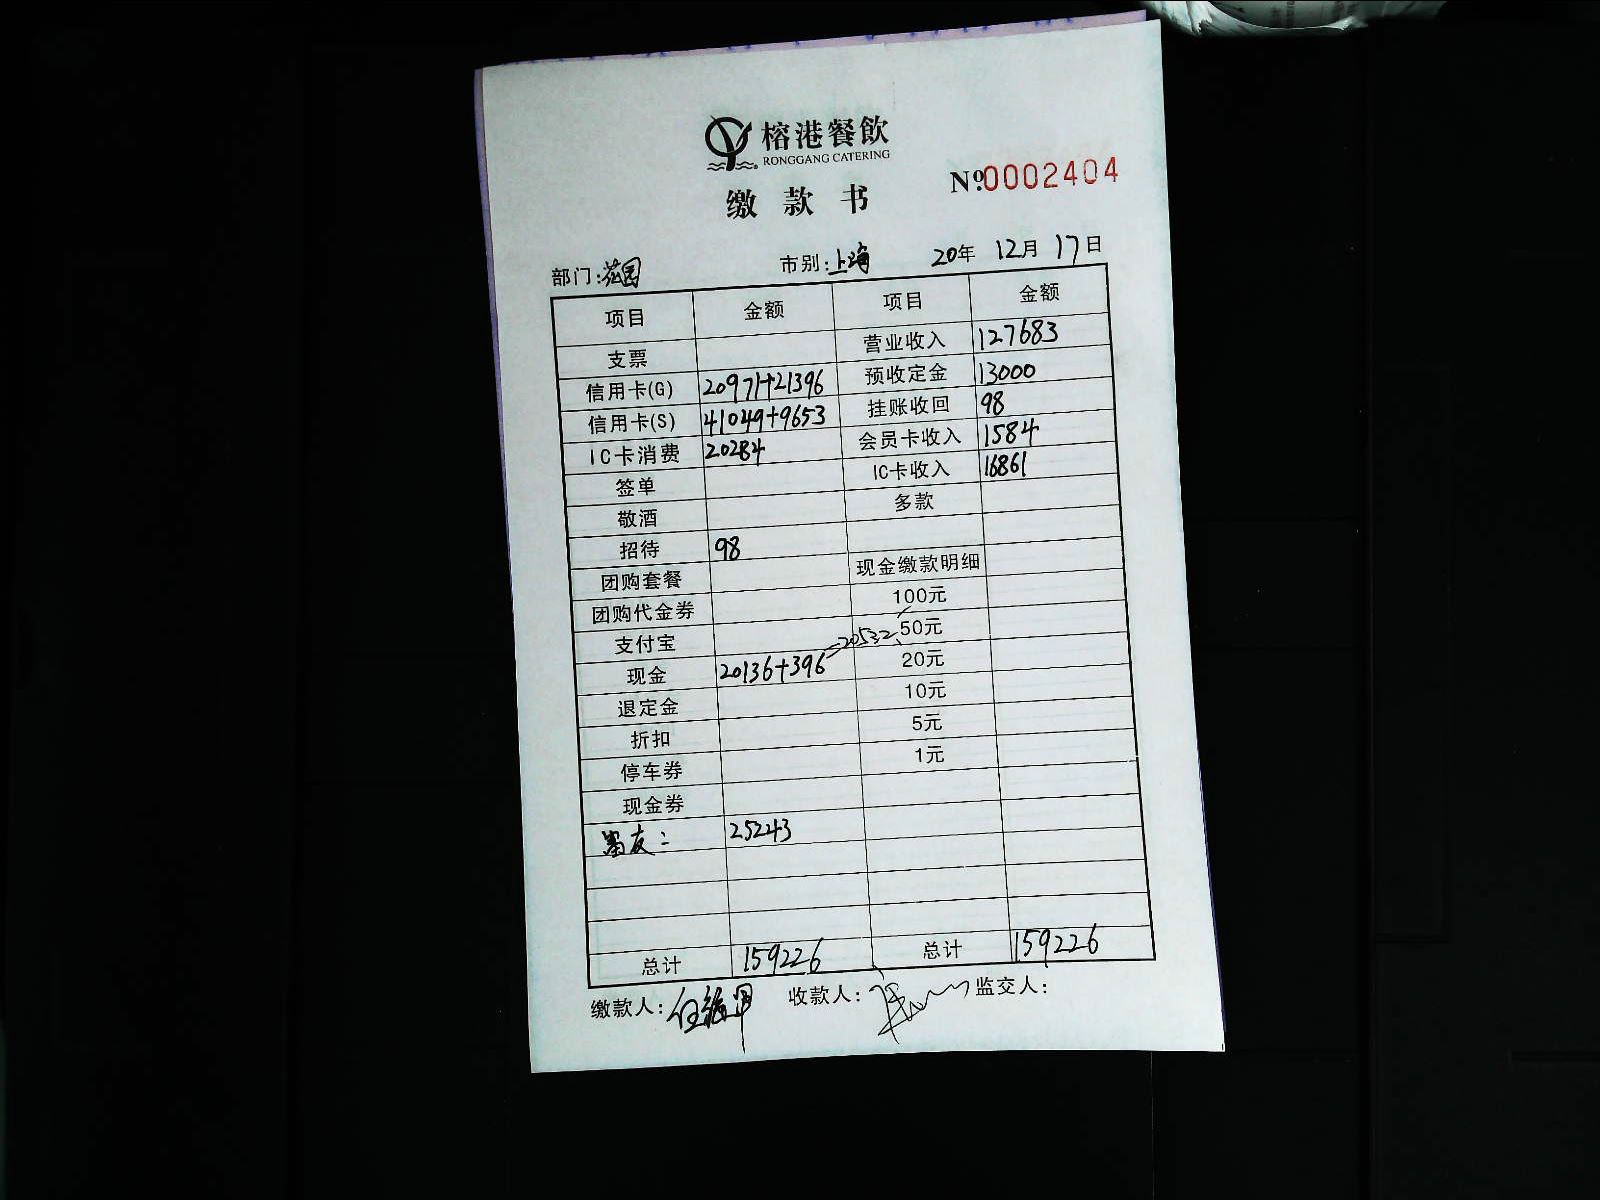 榕港餐飲
RONGGANG CATERING
缴款书
Nº.0002404
部门:花园 市别:上海 20年 12月 17日
项目 金额 项目 金额
支票 营业收入 127683
信用卡(G) 20971+21396 预收定金 13000
信用卡(S) 41049+9653 挂账收回 98
IC卡消费 20284 会员卡收入 1584
签单 IC卡收入 16861
敬酒 多款
招待 98
团购套餐 现金缴款明细
团购代金券 100元
支付宝 =20532 50元
现金 20136+396 20元
退定金 10元
折扣 5元
停车券 1元
现金券
友: 25243
总计 159226 总计 159226
缴款人: 收款人: 监交人: